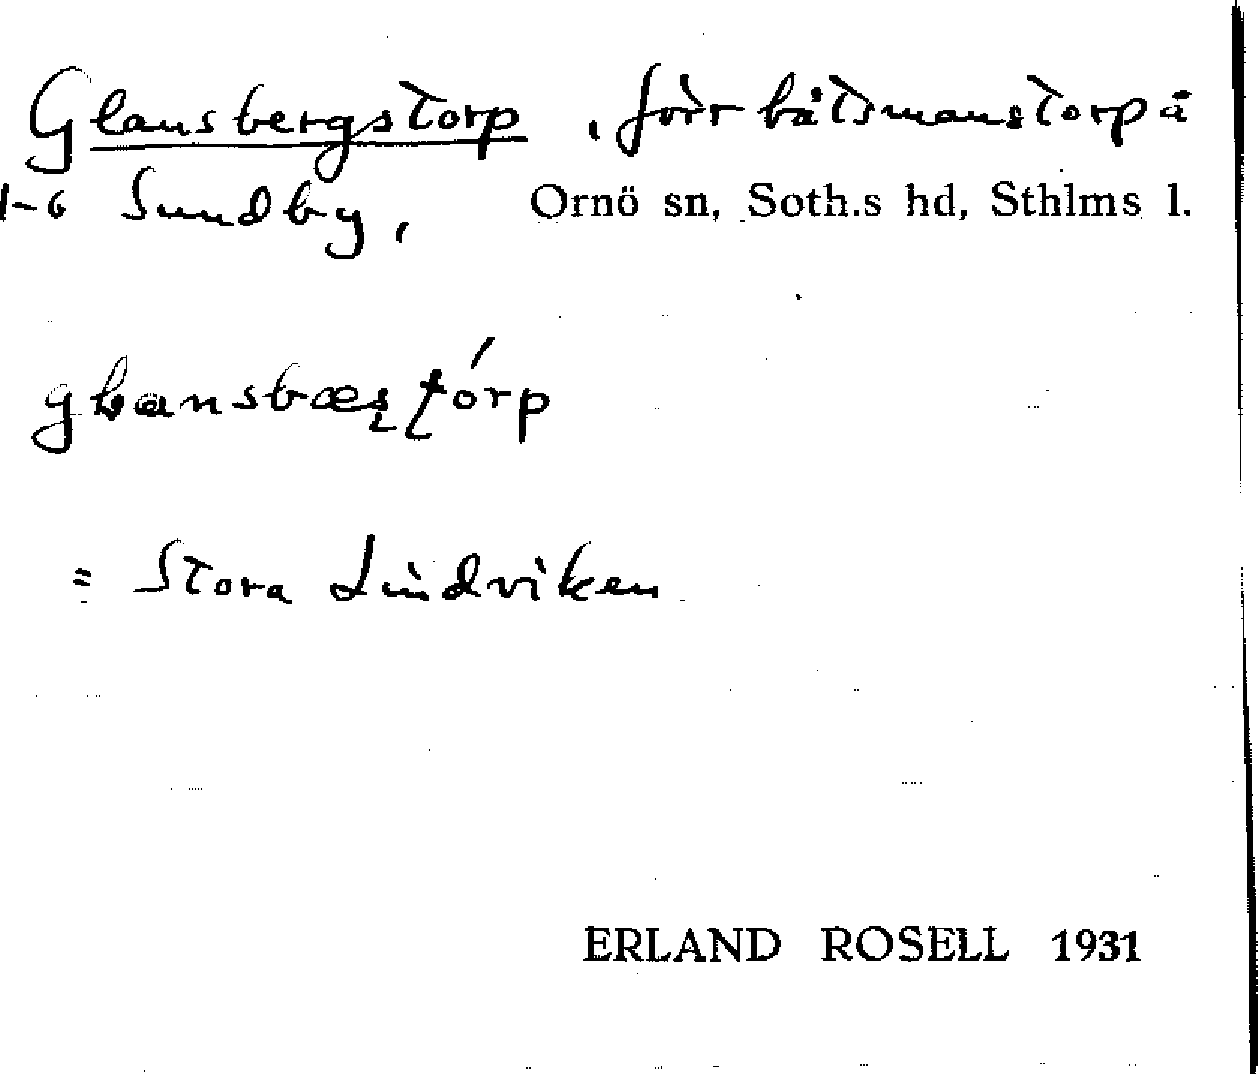 Glansbergstorp, förr båtsmanstorp å
1-6 Sundby, Ornö sn, Soth.s hd, Sthlms l.
= Stora Lindviken
ERLAND ROSELL 1931